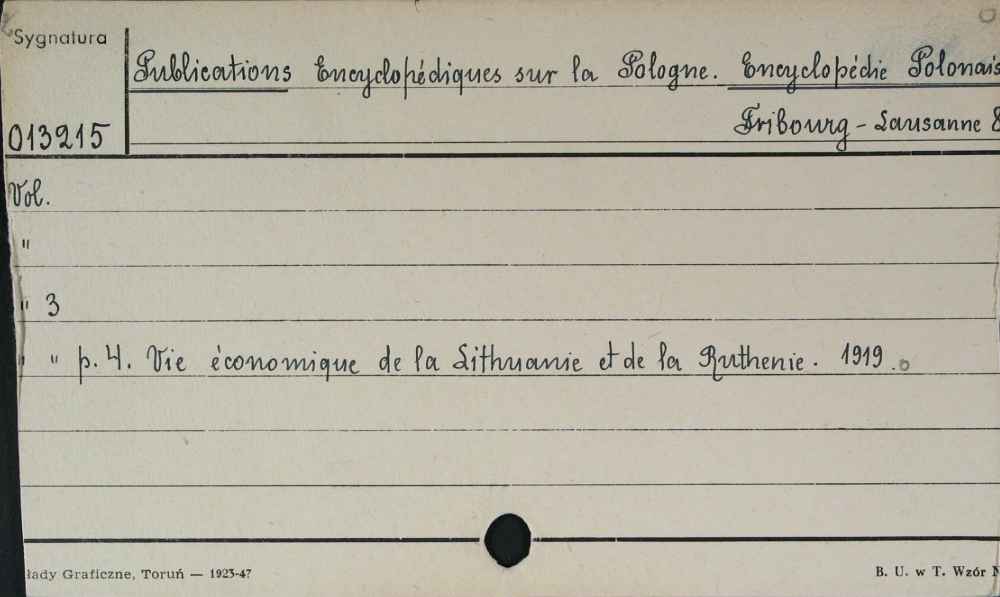 Sygnatura
Publications Encyclopédiques sur la Pologne. Encyclopédie Polonais
Fribourg - Lausanne 8
013215
Vol.
"
" 3
" " p. 4. Vie économique de la Lithuanie et de la Ruthenie. 1919.
łady Graficzne, Toruń — 1923-47
B. U. w T. Wzór N